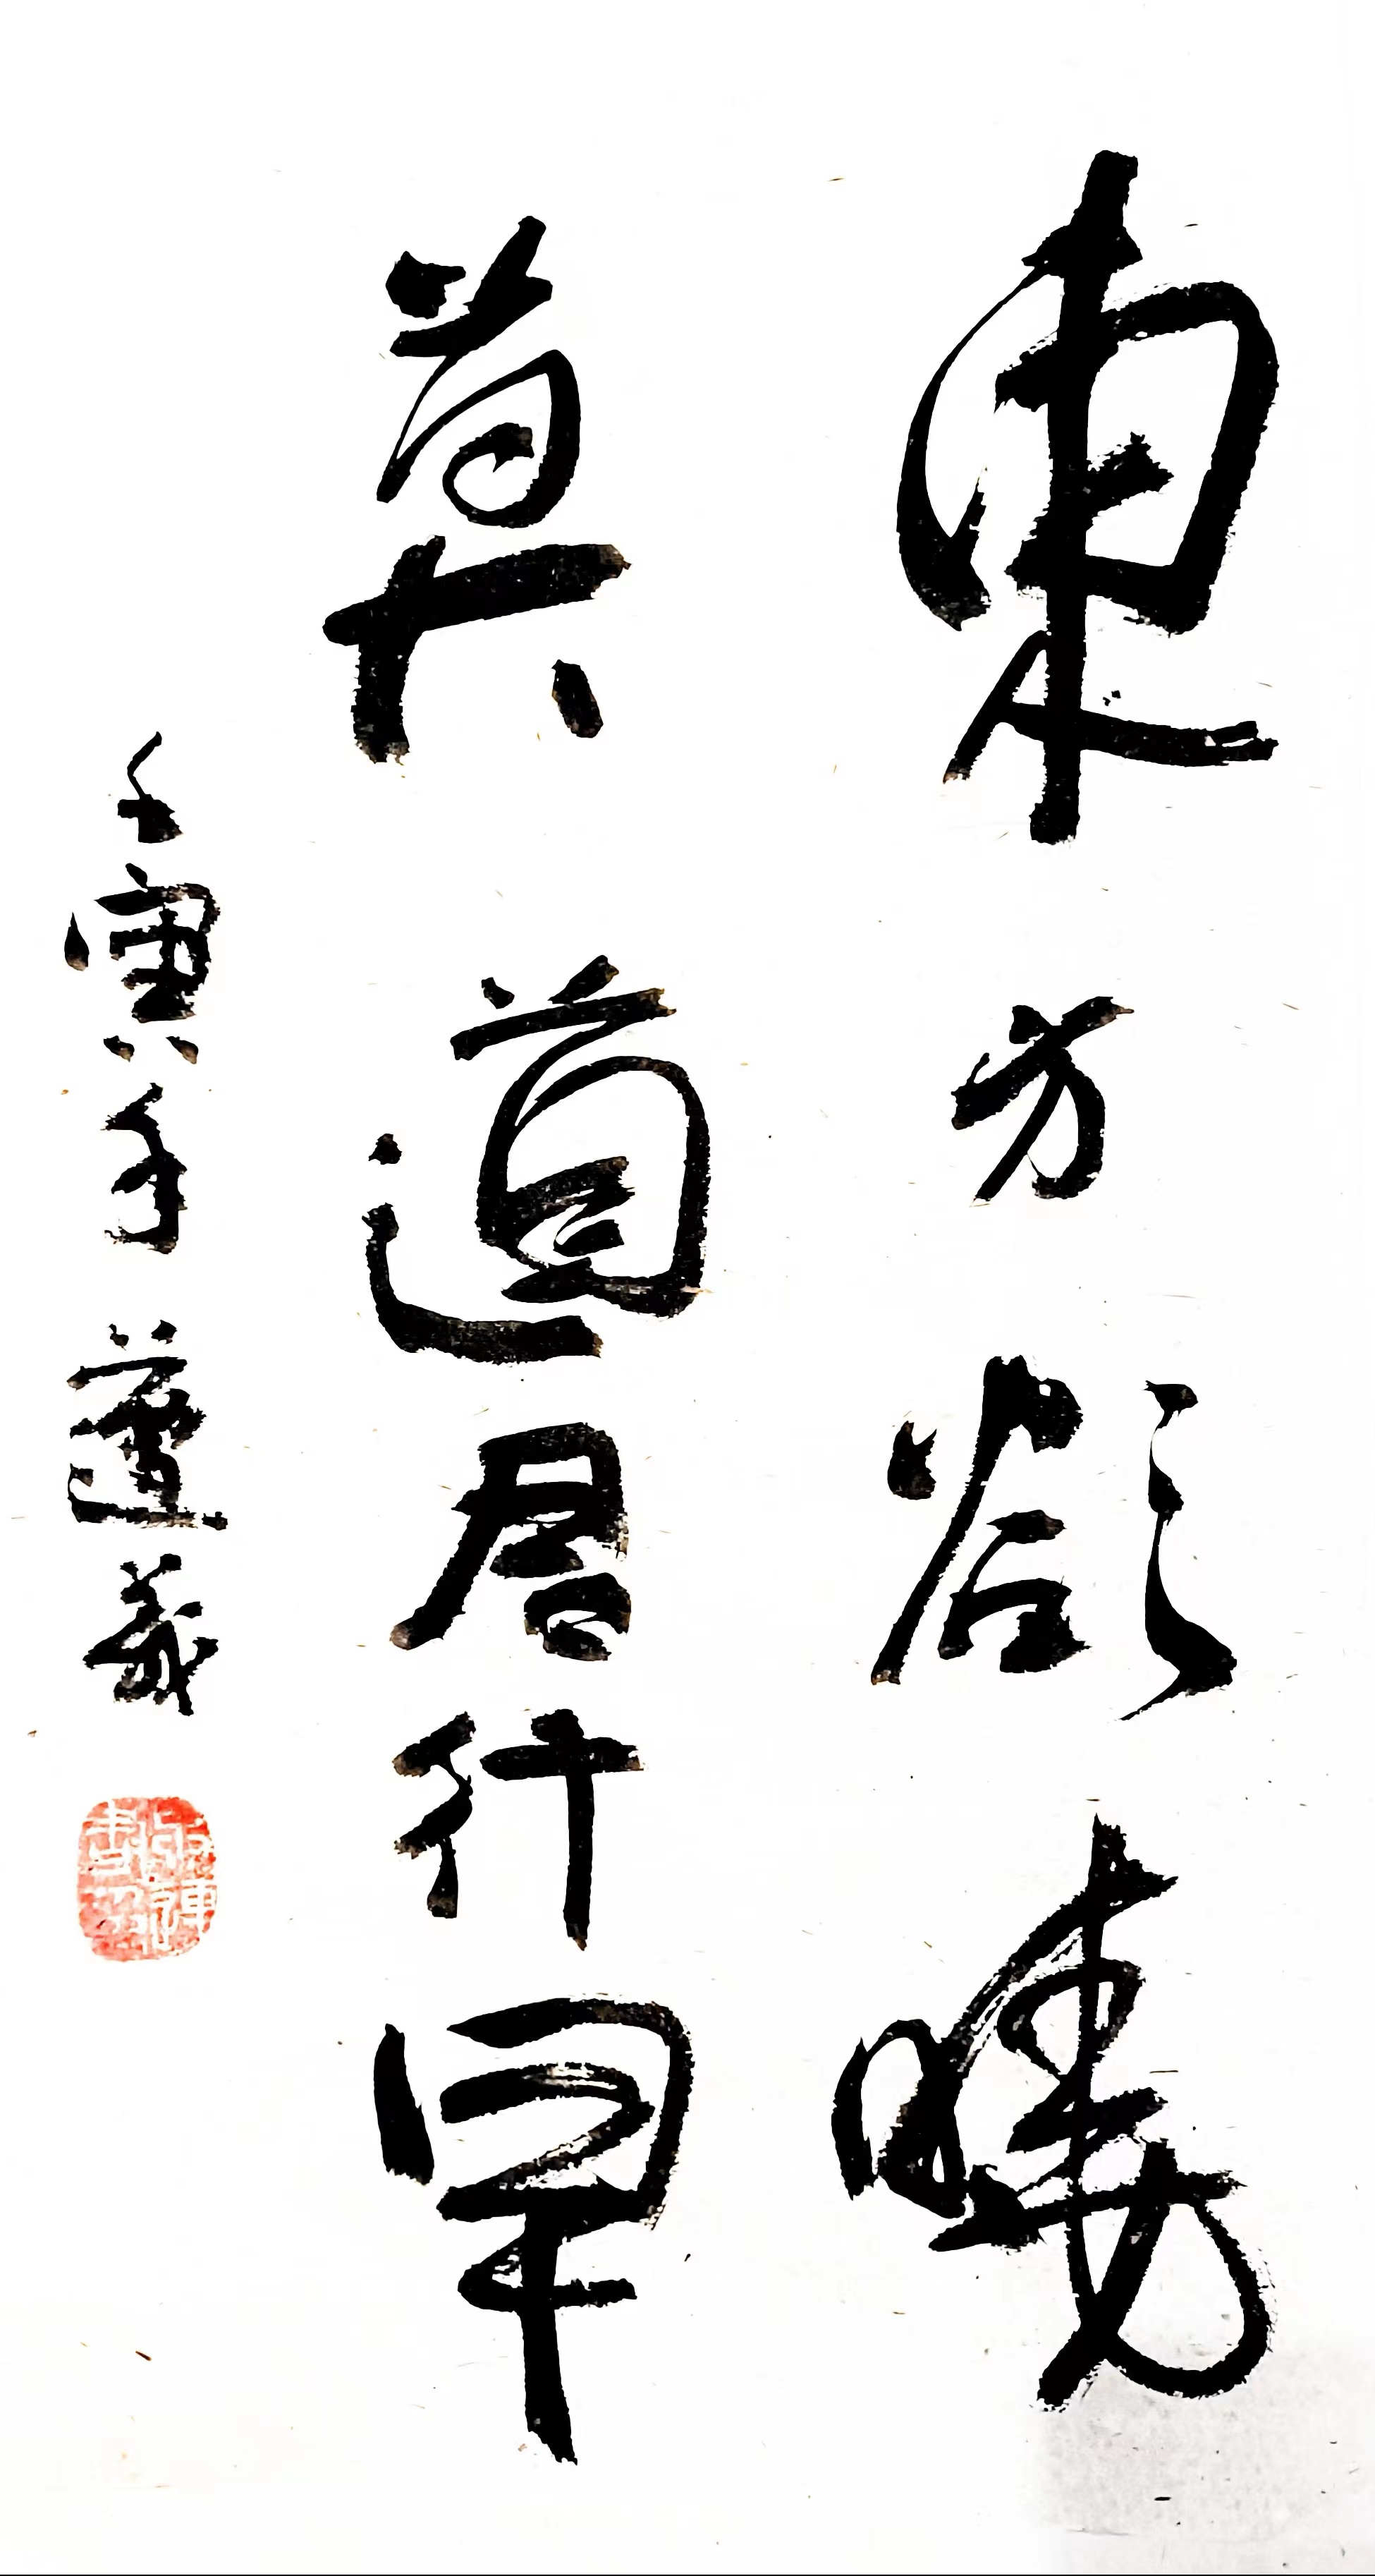 東方欲曉
莫道君行早
壬寅年蓮義